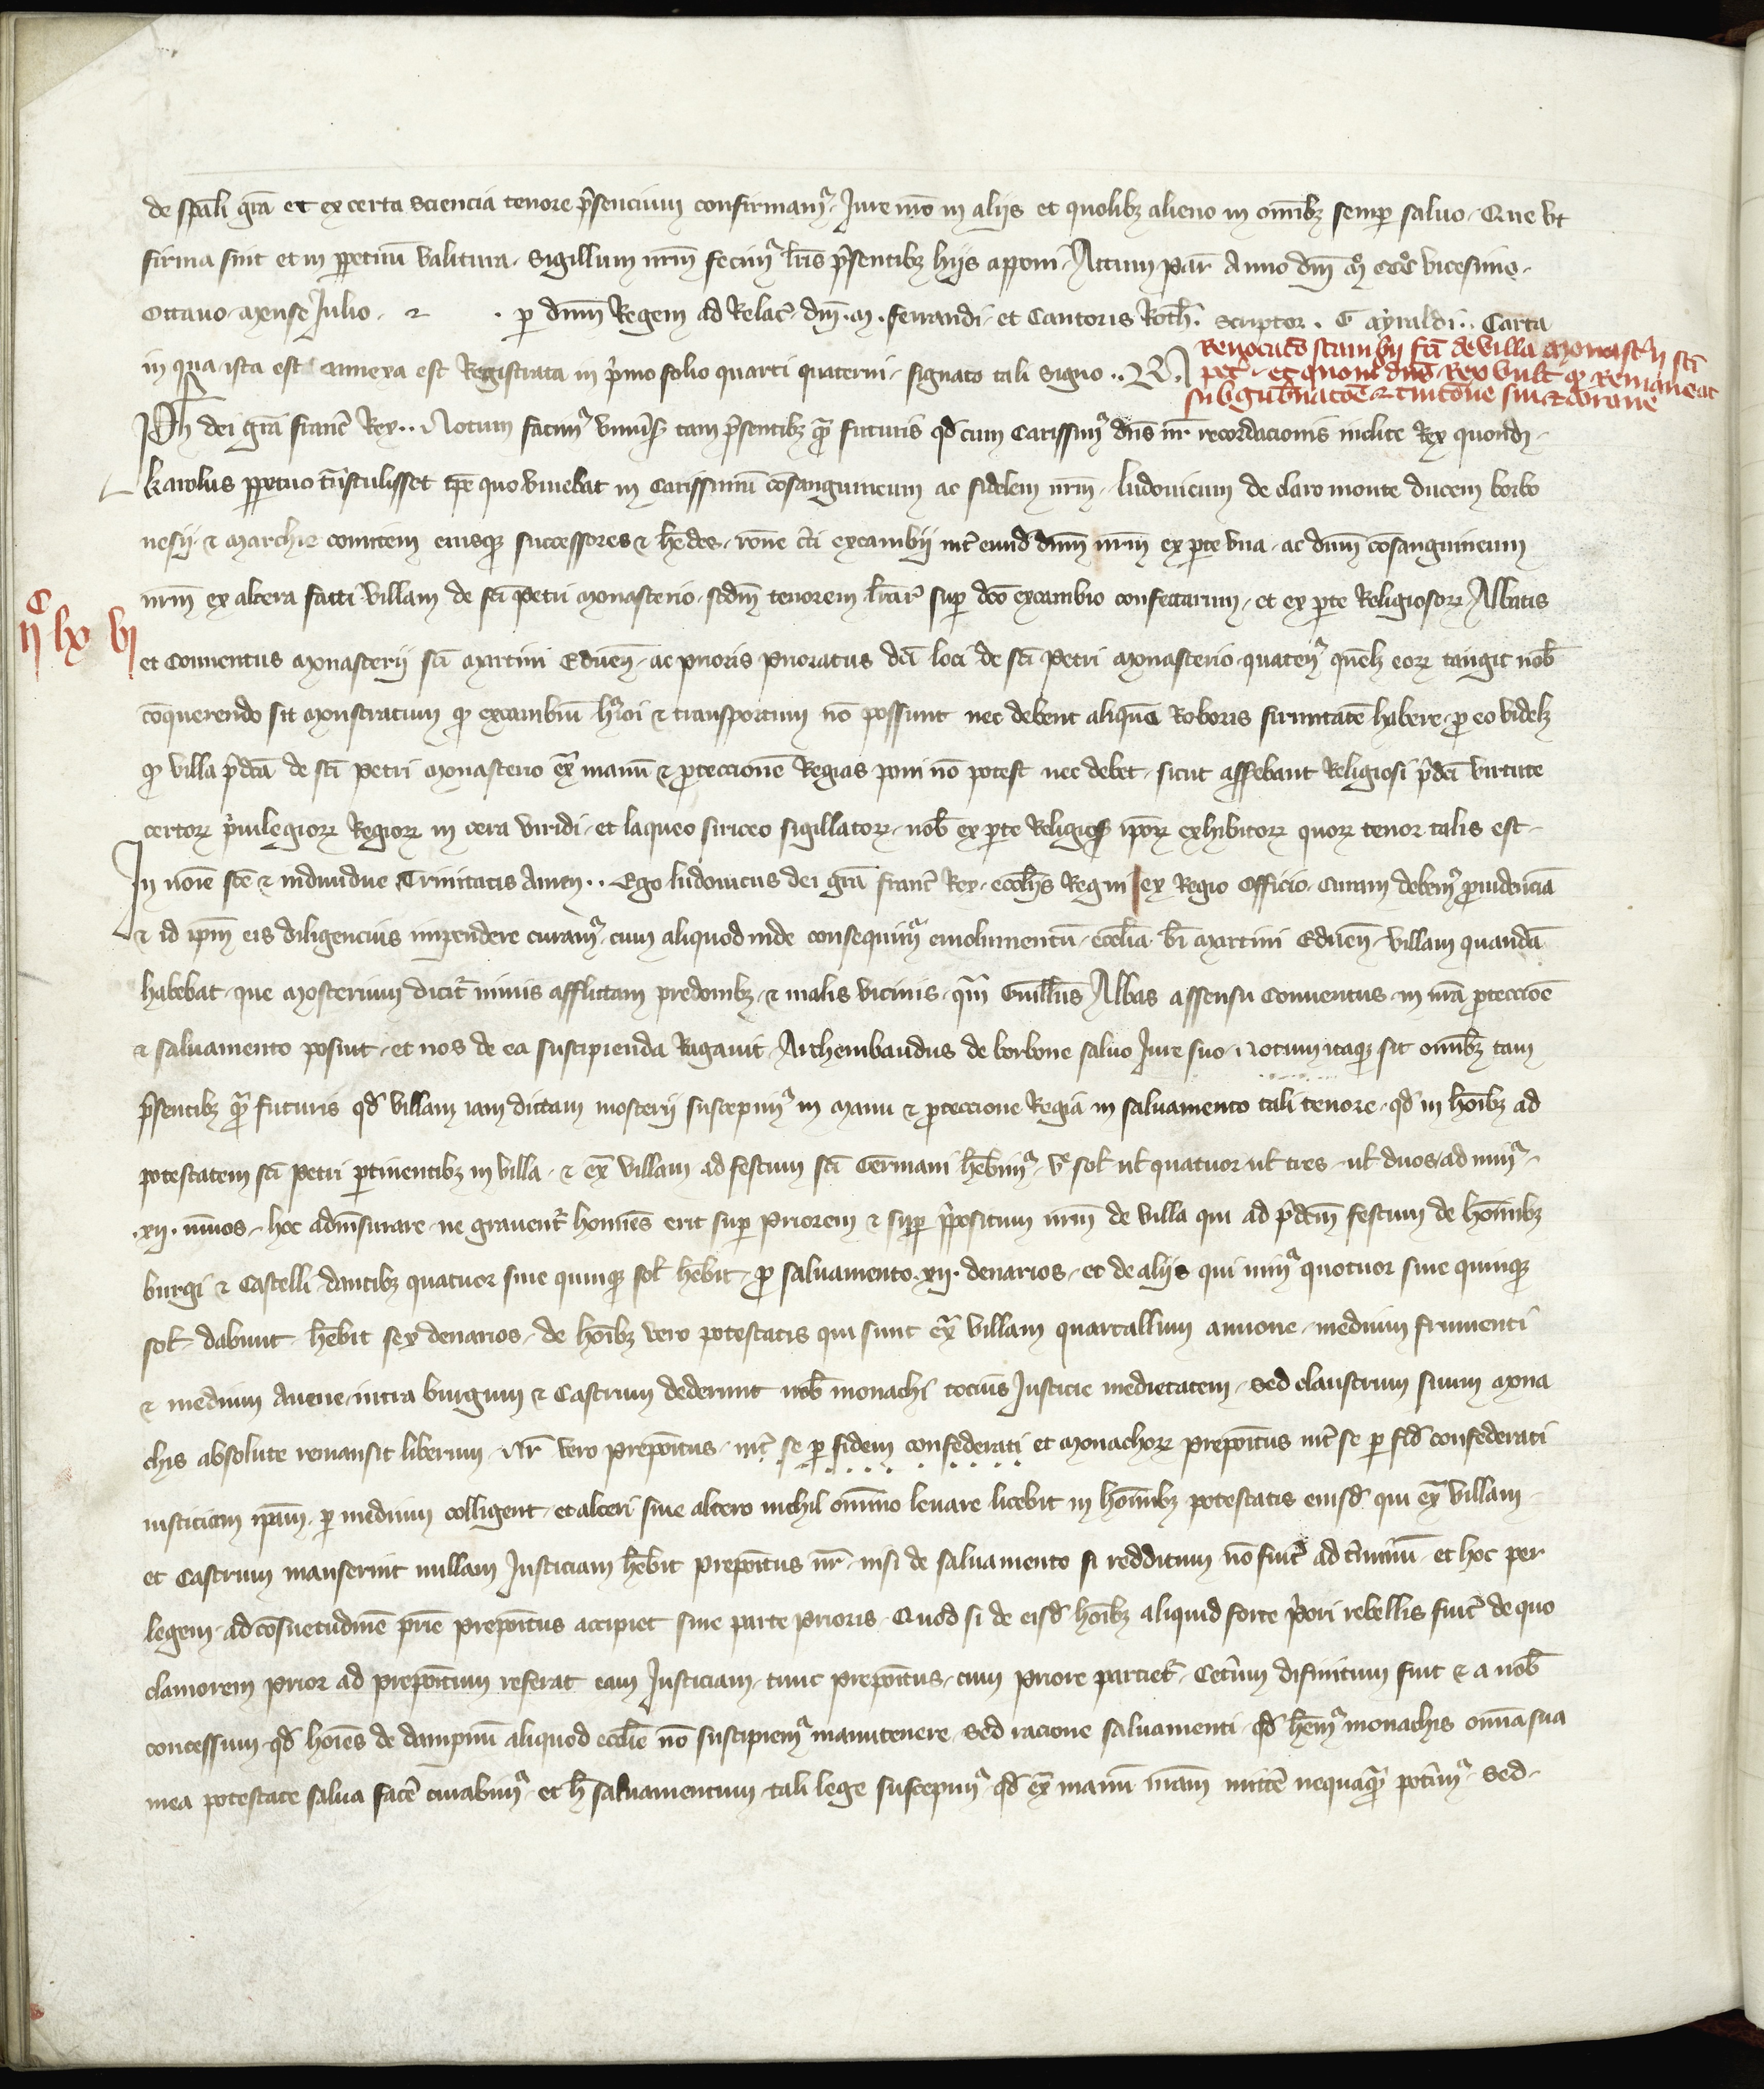 de spali gra et ex certa sciencia tenore presencium confirmam9. Jure nro in aliis et quolibz alieno in omibz semper saluo. Que vt
firma sint et in perpetuu valitura. Sigillum nrm fecim9 lris presentibz hiis apponi. Actum par Anno dni mo cccmo vicesimo.
Octauo. Mense Julio. per dnm Regem ad Relac dni. m. ferrandi. et Cantoris Roth. Scriptor. G ayraldi.. Carta
in qua ista est annexa est Registrata in primo folio quarti quaterni. signato tali signo..
Reuocacio scambii fci de villa Monasterii sci
pet. et quomo dns Rex vult qd Remaneat
sub gubernacoe
Ph dei gra franc Rex.. Notum facim9 vniuersis tam presentibz qua futuris qd cum Carissim9 dns nr recordacionis inclite Rex quondam
karolus perpetuo transtulisset tpe quo viuebat in Carissimu cosanguineum ac fidelem nrm. ludouicum de claro monte ducem borbo
nesii. & Marchie comitem eiusque successores & hedes. rone cti excambii int eund dnm nrm ex parte vna. ac dnm cosanguineum
nrm ex altera facti villam de sci Petri Monasterio. scdm tenorem lrar super dco excambio confectarum. et ex parte Religiosor Abbatis
et Conuentus Monasterii sci Martini Eduen. ac prioris Prioratus dci loci de sci Petri Monasterio. quaten9 quelz eor tangit nob
ijc lx vj
coquerendo sit monstratum qd excambiu & transportum no possunt nec debent aliqua Roboris firmitate habere. pro eo videlz
qd villa pdca de sci Petri Monasterio extra manu & proteccione Regias poni no potest nec debet. sicut asserebant Religiosi pdci virtute
certor priuilegior Regior in cera viridi. et laqueo siriceo sigillator. nob ex parte Religios ipor exhibitor quor tenor talis est.
In noie sce & indiuidue Trinitatis Amen.. Ego ludouicus dei gra franc Rex. ecclijs Regni ex Regio Officio. curam debem9 prouidencia
& id ipm eis diligencius impendere curam9. cum aliquod inde consequim9 emolumentu. ecclia bi Martini Eduen. villam quanda
habebat. que Mosterium dicit nimis afflictam predonibz. & malis vicinis. qm Guillms Abbas assensu Conuentus. in nra proteccioe
& saluamento posuit. et nos de ea suscipienda Rogauit. Archembaudus de borbone saluo Jure suo. Notum itaque sit omibz tam
presentibz qua futuris qd villam iam dictam mosterii suscepim9 in manu & proteccione Regia in saluamento tali tenore. qd in hoibz ad
potestatem sci Petri pertinentibz in villa. & ex villam ad festum sci Germani hebim9. v sol. ul quatuor ul tres. ul duos. ad min9.
.xij. nmos. hoc admsurare. ne grauent homies erit super Priorem & super prpositum nrm de villa qui ad pdcm festum de homibz
burgi & Castelli dantibz quatuor siue quinque sol hebit. pro saluamento. xij. denarios. et de aliis qui min9 quotuor siue quinque
sol. dabunt. hebit sex denarios. de hoibz vero potestatis qui sunt ex villam quartallum annone. medium frumenti
& medium Auene. intra burgum & Castrum dederunt nob monachi tocius Justicie medietatem. sed claustrum suum Mona
chis absolute remansit liberum. Nr vero prepoitus. int se per fidem confederati et Monachor prepoitus int se per fid confederati
iusticiam ipam. per medium colligent. et alteri sine altero nichil omino leuare licebit in homibz potestatis eiusd qui ex villam.
et Castrum manserint nullam Justiciam hebit prepoitus nr. nisi de saluamento si redditum no fuit ad tminu. et hoc per
legem. ad cosuetudine prie prepoitus accipiet sine parte prioris. Quod si de eisd hoibz aliquid forte priori rebellis fuit de quo
clamorem Prior ad prepoitum referat eam Justiciam. tunc prepoitus. cum Priore parciet. Cetum difinitum fuit & a nob
concessum qd hoies de dampnu aliquod ecclie no suscipiem9 manutenere. sed racione saluamenti. qd hem9 monachis omia sua
mea potestate salua face curabim9. et h saluamentum tali lege suscepim9 qd ex manu nram mitte nequaqua potim9. sed.